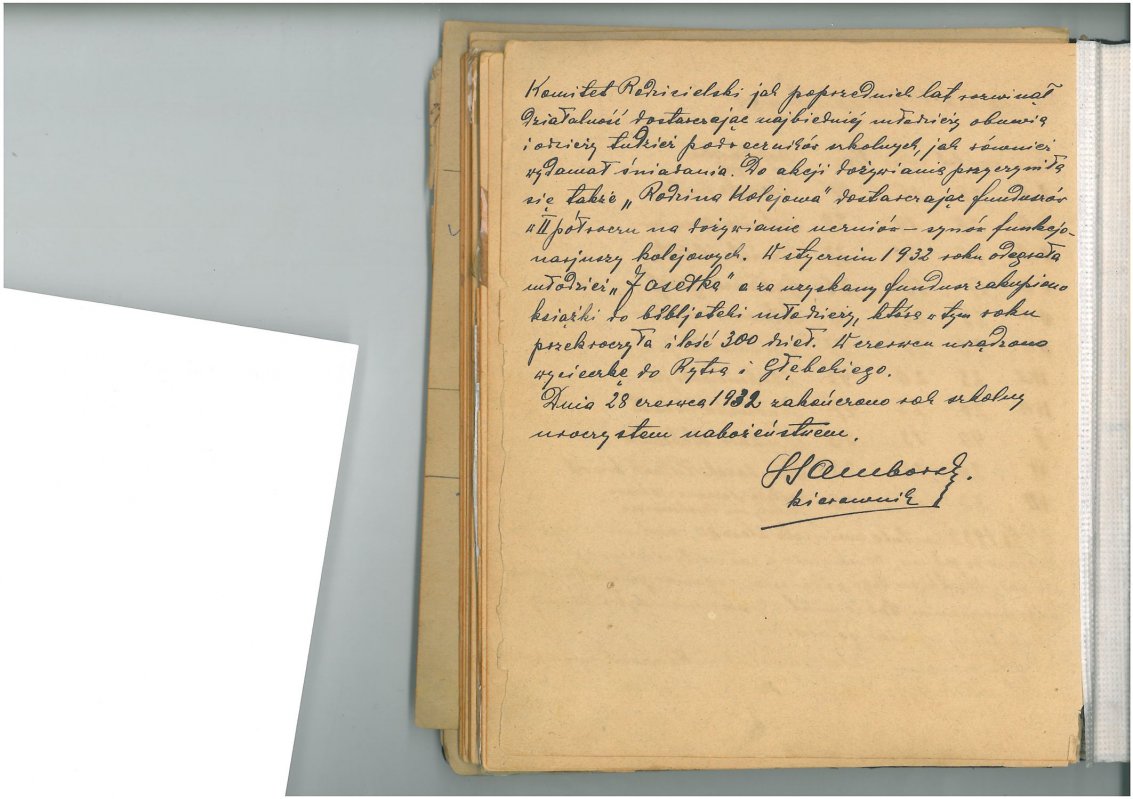 Komitet Rodzicielski jak poprzednich lat rozwinął
działalność dostarczając najbiedniej młodzieży obuwia
i odzieży tudzież podręczników szkolnych, jak również
wydawał śniadania. Do akcji dożywiania przyczyniła
się także „Rodzina Kolejowa" dostarczając funduszów
w II półroczu na dożywianie uczniów – synów funkcjo-
narjuszy kolejowych. W styczniu 1932 roku odegrała
młodzież „Jasełka" a za uzyskany fundusz zakupiono
książki do bibljoteki młodzieży, która w tym roku
przekroczyła ilość 300 dzieł. W czerwcu urządzono
wycieczkę do Rytra i Głębokiego.
Dnia 28 czerwca 1932 zakończono rok szkolny
uroczystem nabożeństwem.
kierownik